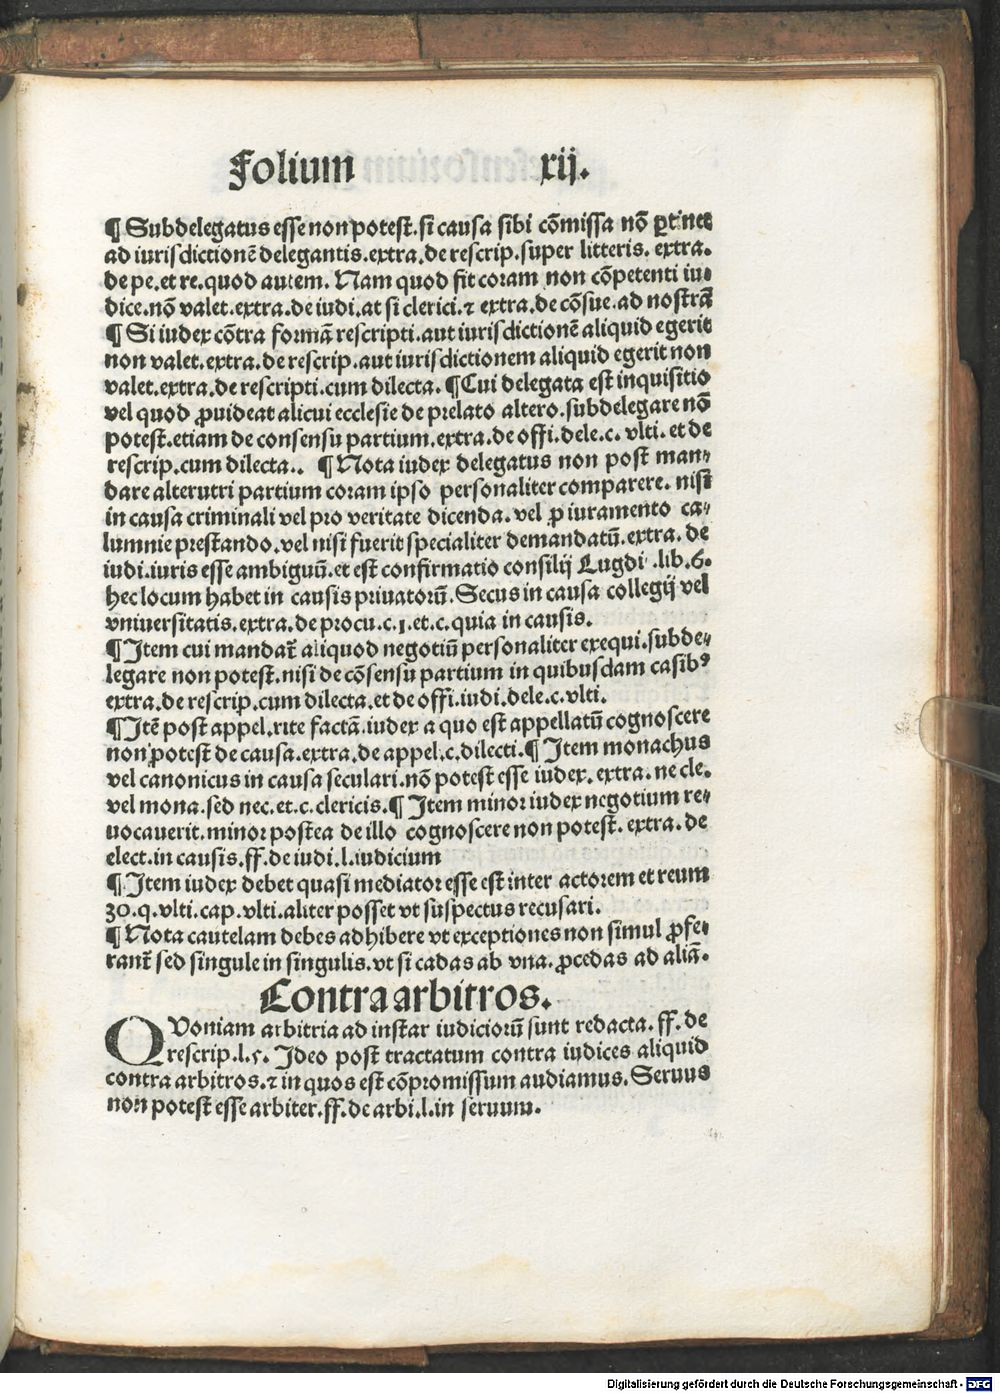 Folium xij.
¶ Subdelegatus esse non potest. si causa sibi cõmissa nõ ꝑtinet
ad iurisdictionẽ delegantis. extra. de rescrip. super litteris. extra.
de pe. et re. quod autem. Nam quod fit coram non cõpetenti iu⸗
dice. nõ valet. extra. de iudi. at si clerici. ⁊ extra. de cõsue. ad nostrã
¶ Si iudex cõtra formã rescripti. aut iurisdictionẽ aliquid egerit
non valet. extra. de rescrip. aut iurisdictionem aliquid egerit non
valet. extra. de rescripti. cum dilecta. ¶ Cui delegata est inquisitio
vel quod ꝓuideat alicui ecclesie de prelato altero. subdelegare nõ
potest. etiam de consensu partium. extra. de offi. dele. c. vlti. et de
rescrip. cum dilecta.. ¶ Nota iudex delegatus non post man⸗
dare alterutri partium coram ipso personaliter comparere. nisi
in causa criminali vel pro veritate dicenda. vel ꝓ iuramento ca⸗
lumnie prestando. vel nisi fuerit specialiter demandatũ. extra. de
iudi. iuris esse ambiguũ. et est confirmatio consilij Lugdi .lib. 6.
hec locum habet in causis priuatorũ. Secus in causa collegij vel
vniuersitatis. extra. de procu. c. 1. et. c. quia in causis.
¶ Item cui mandat᷑ aliquod negotiũ personaliter exequi. subde⸗
legare non potest. nisi de cõsensu partium in quibusdam casibꝰ
extra. de rescrip. cum dilecta. et de offi. iudi. dele. c. vlti.
¶ Itẽ post appel. rite factã. iudex a quo est appellatũ cognoscere
non potest de causa. extra. de appel. c. dilecti. ¶ Item monachus
vel canonicus in causa seculari. nõ potest esse iudex. extra. ne cle.
vel mona. sed nec. et. c. clericis. ¶ Item minor iudex negotium re⸗
uocauerit. minor postea de illo cognoscere non potest. extra. de
elect. in causis. ff. de iudi. l. iudicium
¶ Item iudex debet quasi mediator esse est inter actorem et reum
30. q. vlti. cap. vlti. aliter posset vt suspectus recusari.
¶ Nota cautelam debes adhibere vt exceptiones non simul ꝓfe⸗
rant᷑ sed singule in singulis. vt si cadas ab vna. ꝓcedas ad aliã.
Contra arbitros.
QVoniam arbitria ad instar iudiciorũ sunt redacta. ff. de
rescrip. l. 5. Ideo post tractatum contra iudices aliquid
contra arbitros. ⁊ in quos est cõpromissum audiamus. Seruus
non potest esse arbiter. ff. de arbi. l. in seruum.
Digitalisierung gefördert durch die Deutsche Forschungsgemeinschaft - DFG